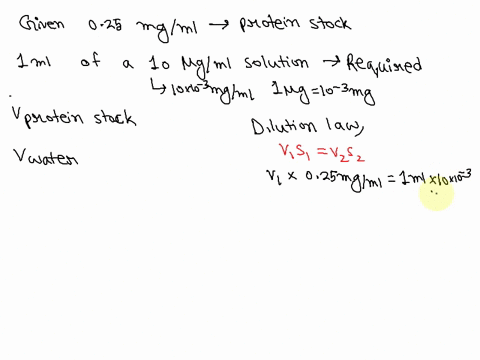 Given 0.25 mg/ml → protein stock
1ml of a 10 Mg/ml solution → Required
↳ 10x10⁻³mg/ml 1Mg=10⁻³mg
V protein stock
Dilution law,
V water
V₁S₁ = V₂S₂
V₁ × 0.25mg/ml = 1ml×10×10⁻³